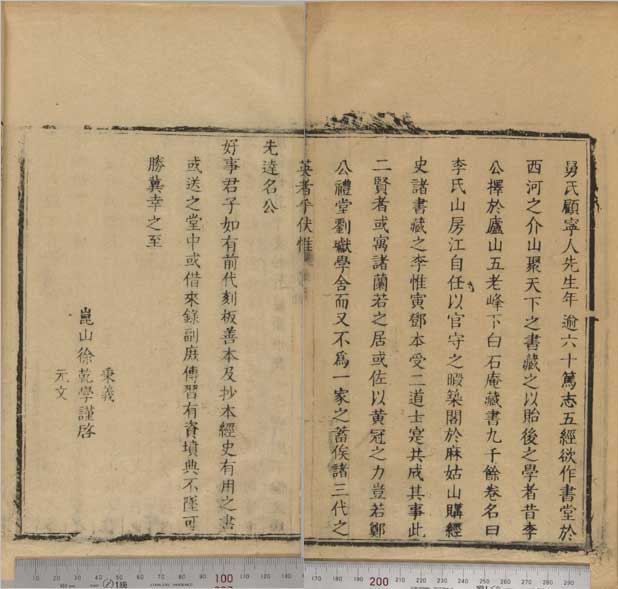 舅氏顧寧人先生年逾六十篤志五經欲作書堂於
西河之介山聚天下之書藏之以貽後之學者昔李
公擇於廬山五老峰下白石庵藏書九千餘卷名曰
李氏山房江自任以官守之暇築閣於麻姑山購經
史諸書藏之李惟寅鄧本受二道士寔共成其事此
二賢者或寓諸蘭若之居或佐以黃冠之力豈若鄴
公禮堂劉嶽學舍而又不爲一家之蓄俟諸三代之
英者乎伏惟
先達名公
好事君子如有前代刻板善本及抄本經史有用之書
或送之堂中或借來錄副庶傳習有資墳典不墜可
勝冀幸之至
秉義
崑山徐乾學謹啓
元文